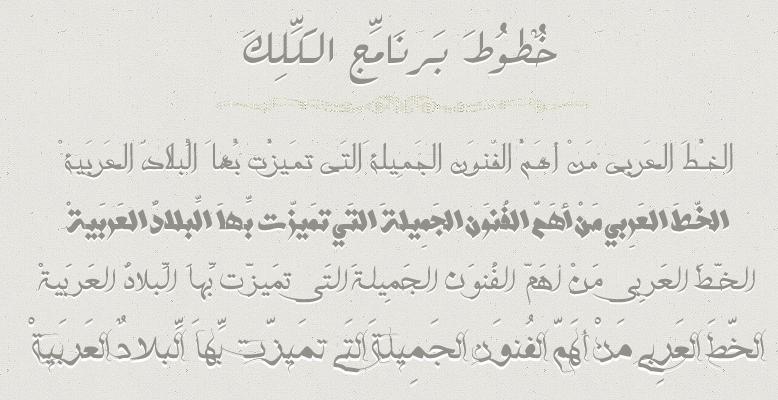 خُطوُطَ بَرنَامِّج الكَلِّكَ
الخطَ العَربى مَنْ أهَمُ الفّنوَن الجَميلة التَى تمَيزُت بُهاَ البُلادَ العَربَيةَ
الخّطَ العَرِبي مَنْ أهَمّ الفُنوَن الجَمِيلةَ التَي تمَيزّت بِّهاَ البّلادُ العَرَبيةْ
الخّطَ العَرِبى مَنْ أهَمّ الفُنوَن الجَمِيلةَ التَى تمَيزّت بِّهاَ البّلادُ العَرَبيةْ
الخّطَ العَرِبي مَنْ أهَمّ الفُنوَن الجَمِيلةَ التَي تمَيزّت بِّهاَ البّلادُ العَرَبيةْ